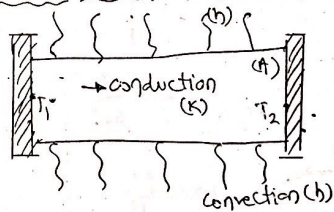 (h)
(A)
→ conduction
(K)
T₁
T₂
convection (h)